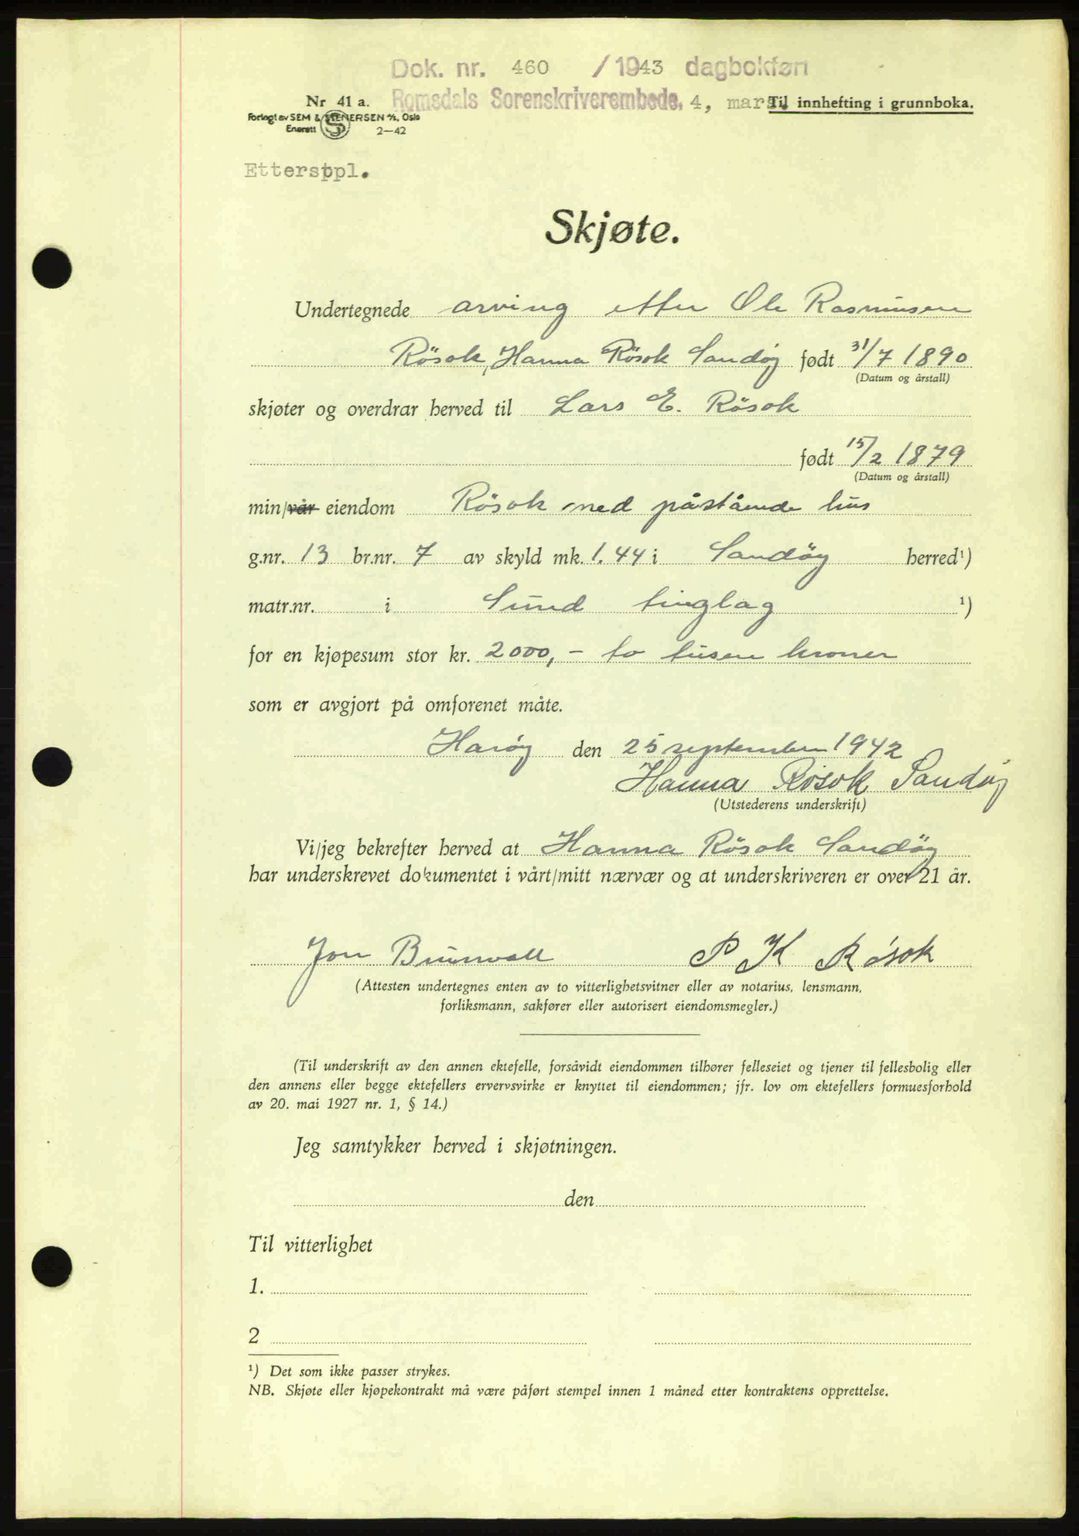 Dok. nr. 460 /1943 dagbokført
Nr 41 a. Romsdals Sorenskriverembede, 4, mars. Til innhefting i grunnboka.
Forlagt av SEM & STENERSEN A/S, Oslo
Enerett 2—42
Etterstpl.
Skjøte.
Undertegnede arving etter Ole Rasmusen
Rösok, Hanna Rösok Sandøy født 31/7 1890
(Datum og årstall)
skjøter og overdrar herved til Lars E. Røsok
født 15/2 1879
(Datum og årstall)
min/vår eiendom Røsok med påstående hus
g.nr. 13 br.nr. 7 av skyld mk. 1.44 i Sandöy herred¹)
matr.nr. i Sund tinglag ¹)
for en kjøpesum stor kr. 2000,- to tusen kroner
som er avgjort på omforenet måte.
Harøy den 25 september 1942
Hanna Røsok Sandøy
(Utstederens underskrift)
Vi/jeg bekrefter herved at Hanna Røsok Sandöy
har underskrevet dokumentet i vårt/mitt nærvær og at underskriveren er over 21 år.
Jon Brunvoll P K Røsok
(Attesten undertegnes enten av to vitterlighetsvitner eller av notarius, lensmann,
forliksmann, sakfører eller autorisert eiendomsmegler.)
(Til underskrift av den annen ektefelle, forsåvidt eiendommen tilhører felleseiet og tjener til fellesbolig eller
den annens eller begge ektefellers ervervsvirke er knyttet til eiendommen; jfr. lov om ektefellers formuesforhold
av 20. mai 1927 nr. 1, § 14.)
Jeg samtykker herved i skjøtningen.
den
Til vitterlighet
1.
2
¹) Det som ikke passer strykes.
NB. Skjøte eller kjøpekontrakt må være påført stempel innen 1 måned etter kontraktens opprettelse.